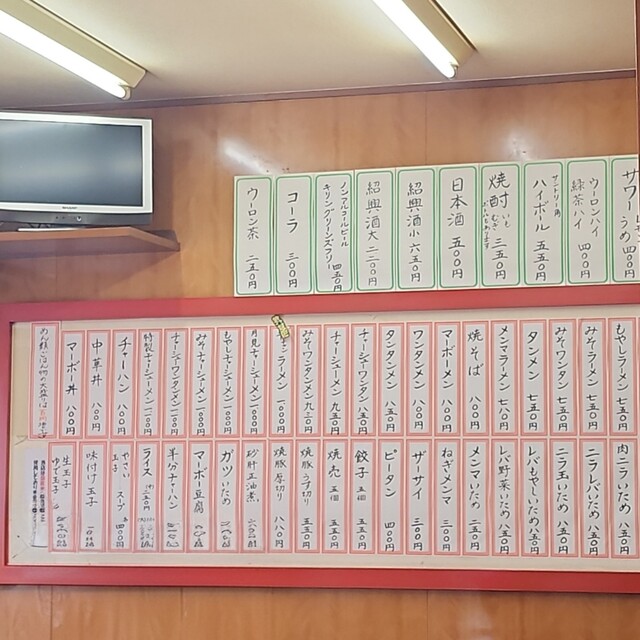 サワー うめ
ウーロンハイ 緑茶ハイ 四〇〇円
サントリー角 ハイボール 五五〇円
焼酎 いも むぎ 三五〇円
日本酒 五〇〇円
紹興酒 小 六五〇円
紹興酒 大 二二〇〇円
ノンアルコールビール キリングリーンズフリー 四五〇円
コーラ 三〇〇円
ウーロン茶 二五〇円
もやしラーメン 七五〇円
みそラーメン 七五〇円
みそワンタン 七五〇円
タンメン 七五〇円
メンマラーメン 七五〇円
焼そば 八〇〇円
マーボーメン 八〇〇円
ワンタンメン 八〇〇円
タンタンメン 八五〇円
チャーシューワンタン 八五〇円
チャーシューメン 九五〇円
みそワンタンメン 九五〇円
ラーメン 一〇〇〇円
月見チャーシューメン 一〇〇〇円
もやしチャーシューメン 一〇〇〇円
みそチャーシューメン 一〇〇〇円
チャーシューワンタンメン 一一〇〇円
特製チャーシューメン 一一〇〇円
チャーハン 八〇〇円
中華丼 八〇〇円
マーボー丼 八〇〇円
肉ニラいため 八五〇円
ニラレバいため 八五〇円
ニラ玉いため 八五〇円
レバもやしいため 八五〇円
レバ野菜いため 八五〇円
メンマいため 五五〇円
ねぎメンマ 三〇〇円
ザーサイ 三〇〇円
ピータン 四〇〇円
餃子 五個 五五〇円
焼売 五個 五五〇円
焼豚うす切り 五五〇円
焼豚厚切り 八八〇円
砂肝正油煮
ガツいため
マーボ豆腐
半分チャーハン
ライス
やさい 玉子 スープ 四〇〇円
味付け玉子
生玉子 ゆで玉子